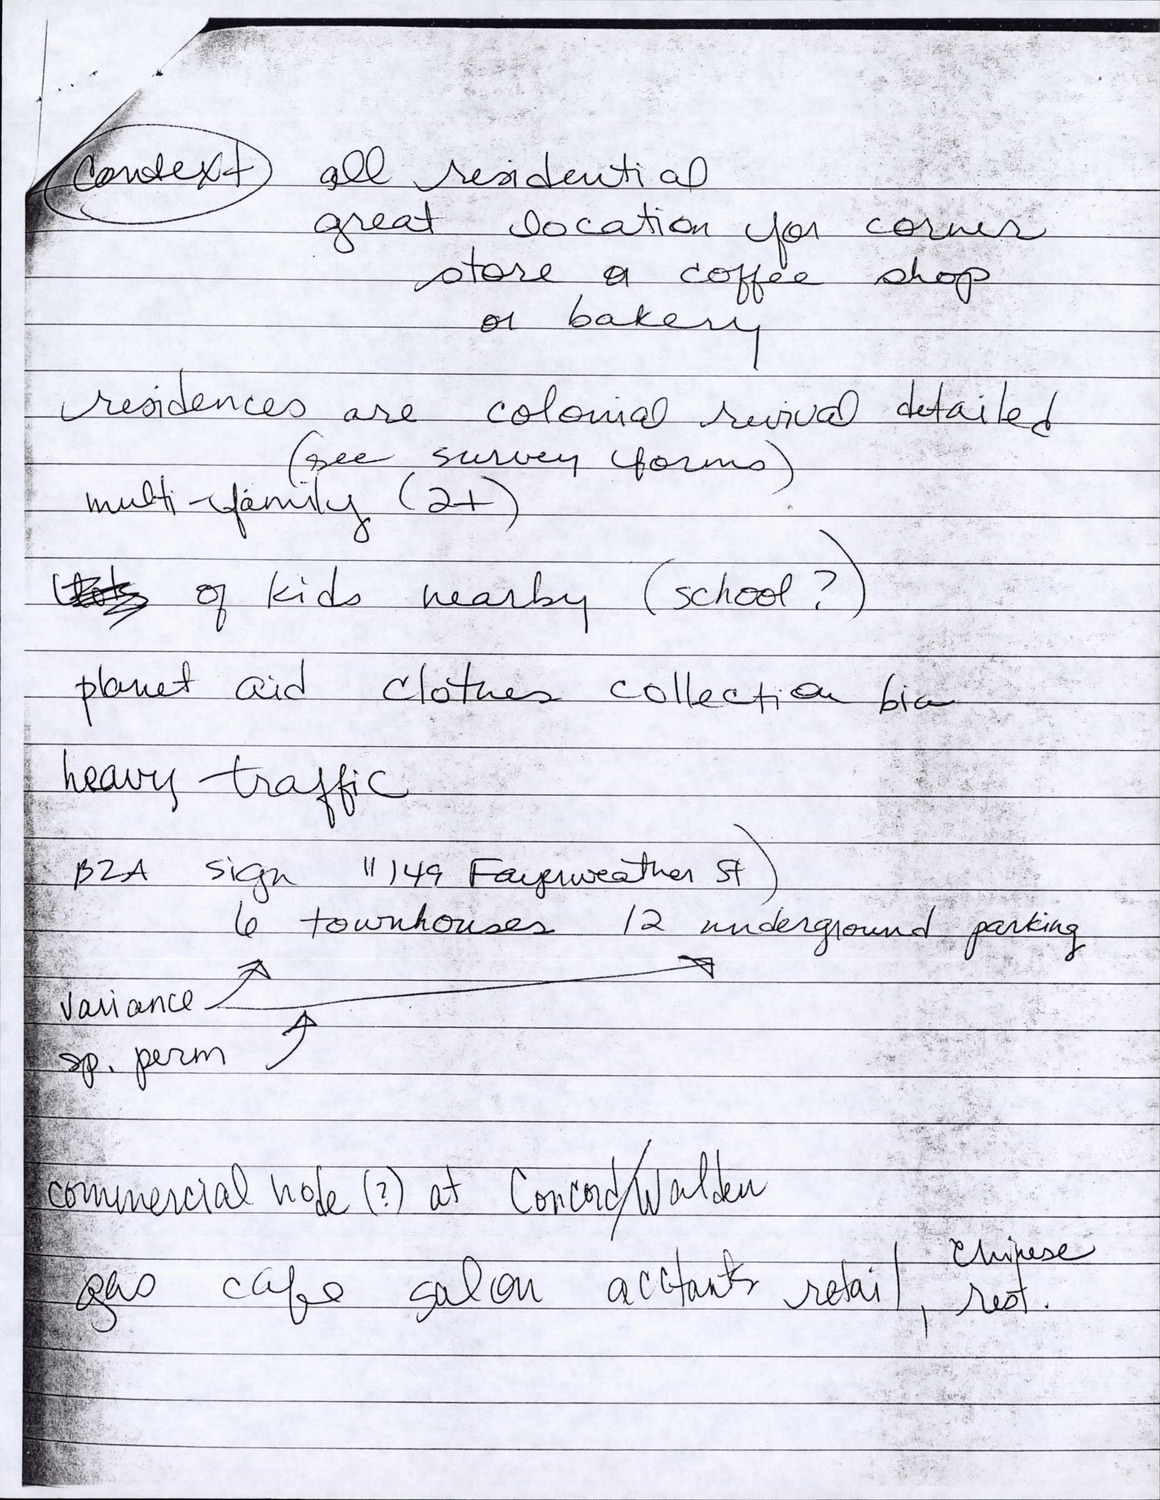 context all residential
great location for corner
store or coffee shop
or bakery
residences are colonial revival detailed
(see survey forms)
multi-family (2+)
of kids nearby (school?)
planet aid clothes collection bin
heavy traffic
BZA sign 149 Fayerweather St)
6 townhouses 12 underground parking
variance
sp. perm
commercial node (?) at Concord/Walden
gas cafe salon acctants retail, Chinese
rest.